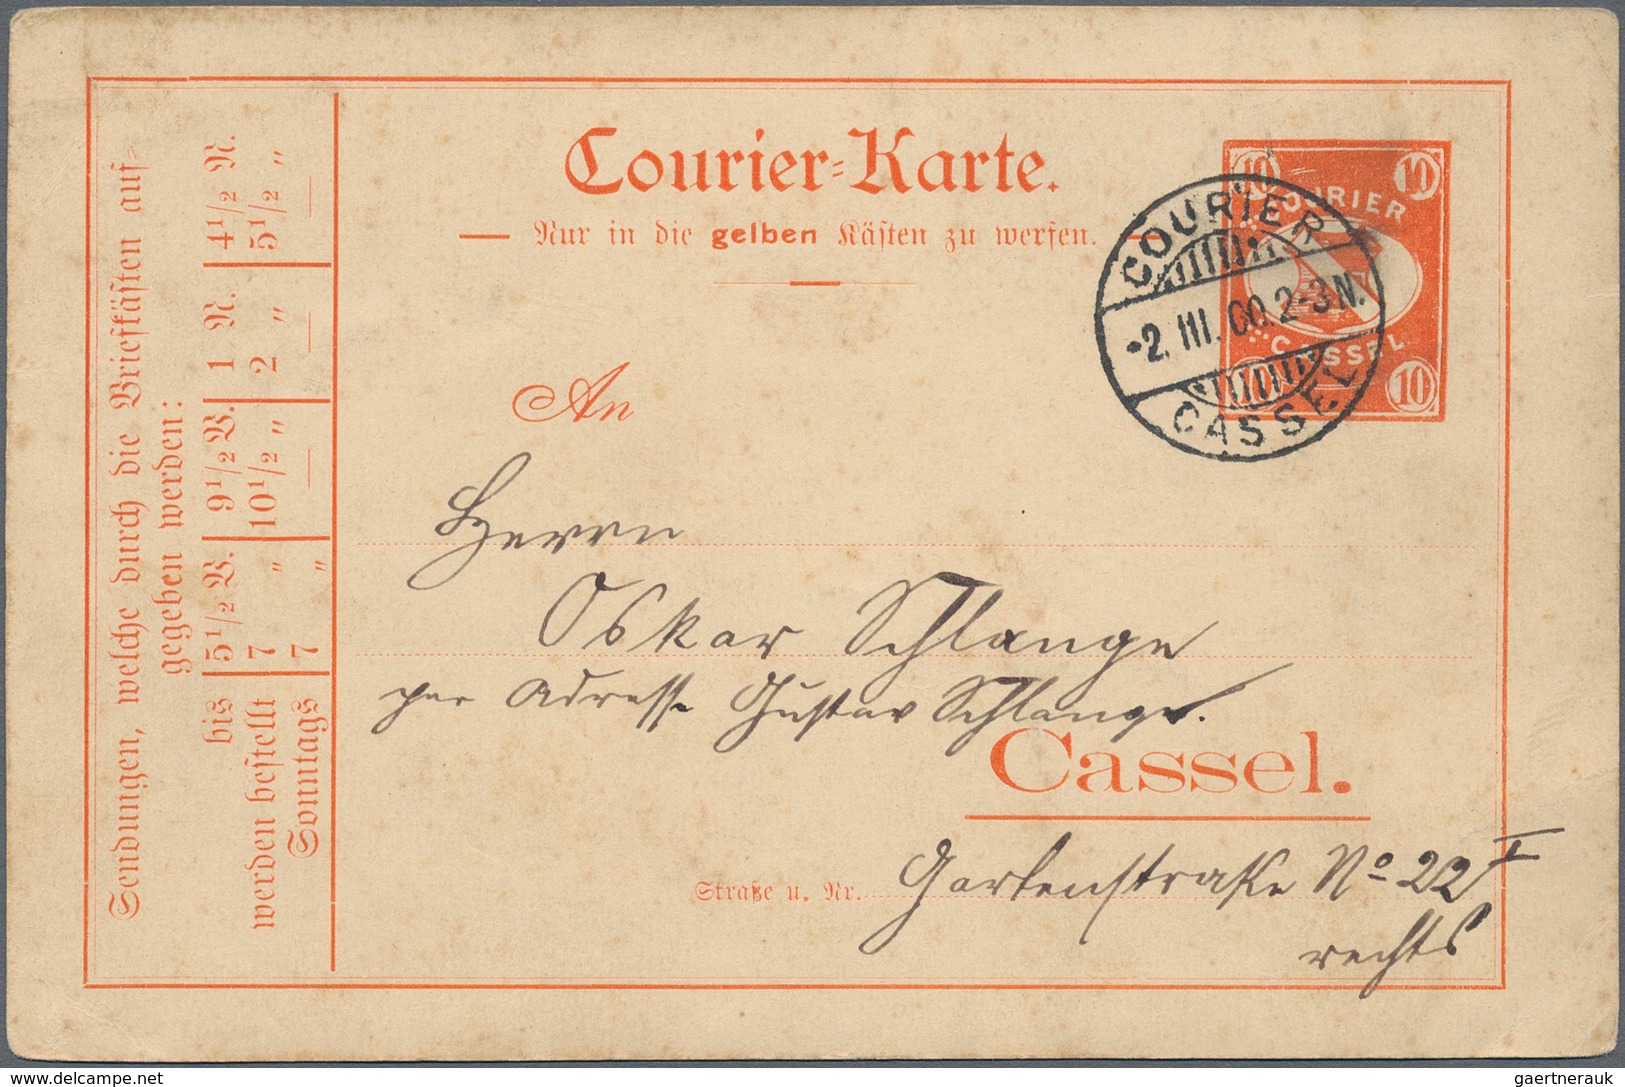 Courier-Karte.
Nur in die gelben Kästen zu werfen.
10 10
COURIER
CASSEL.
10 10
COURIER
-2. III. 00. 2-3 N.
CASSEL
An
Herrn
Oskar Schlange
per Adresse Gustav Schlange.
Cassel.
Straße u. Nr. Gartenstraße No 22 I
rechts
Sendungen, welche durch die Briefkästen auf-
gegeben werden:
bis 5 1/2 V. 9 1/2 V. 1 N. 4 1/2 N.
werden bestellt 7 " 10 1/2 " 2 " 5 1/2 "
Sonntags 7 " — — —
delcampe.net
gaertnerauk